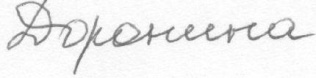 Доронина